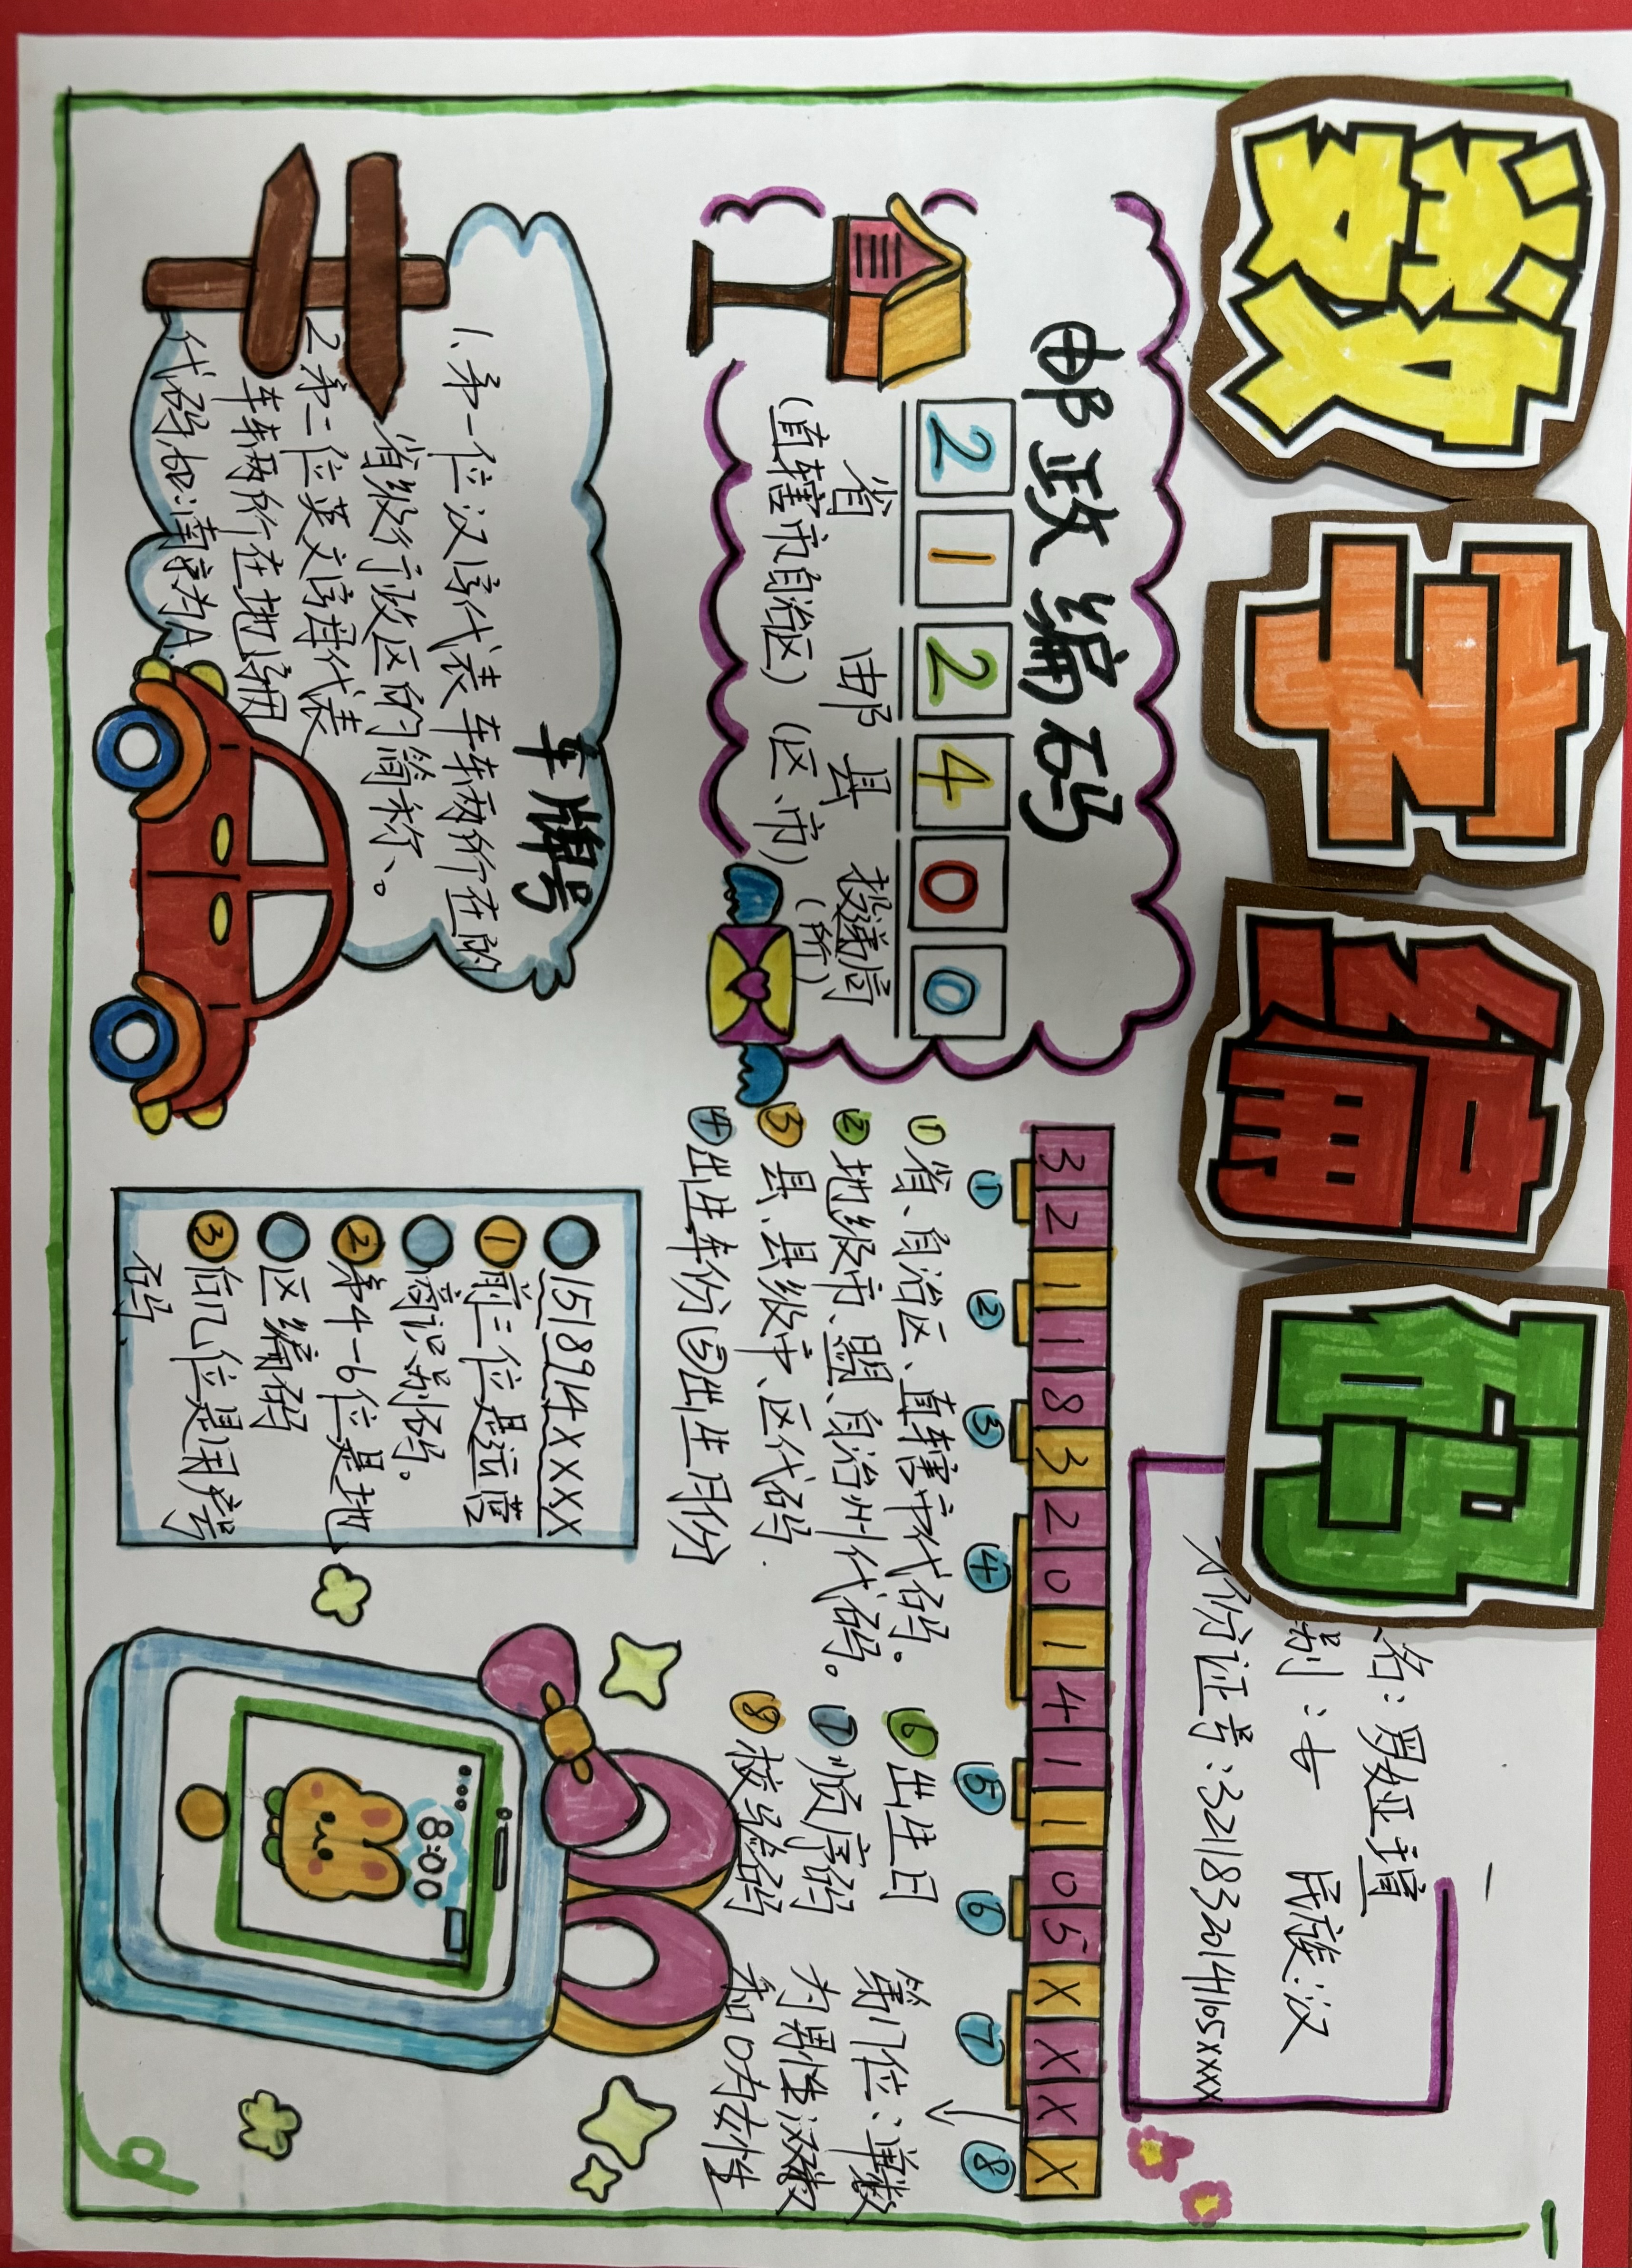 数字编码
邮政编码
2 1 2 4 0 0
省 邮 县 投递局
(直辖市自治区) (区、市) (所)
名: 
别: 女 民族: 汉
份证号: 32118320141105xxxx
3 2 1 1 8 3 2 0 1 4 1 1 0 5 X X X X
① ② ③ ④ ⑤ ⑥ ⑦ ⑧
① 省、自治区、直辖市代码。
② 地级市、盟、自治州代码。
③ 县、县级市、区代码.
④ 出生年份 ⑤ 出生月份
⑥ 出生日
⑦ 顺序码
⑧ 校验码
第17位: 单数
为男性 双数
和0为女性
车牌号
1. 第一位汉字代表车辆所在的
省级行政区的简称、。
2 第二位英文字母代表
车辆所在地级
代码,如: 南京为A.
1518914XXXX
① 前三位是运营
商识别码。
② 第4-6位是地
区编码
③ 后几位是用户号
码
8:00